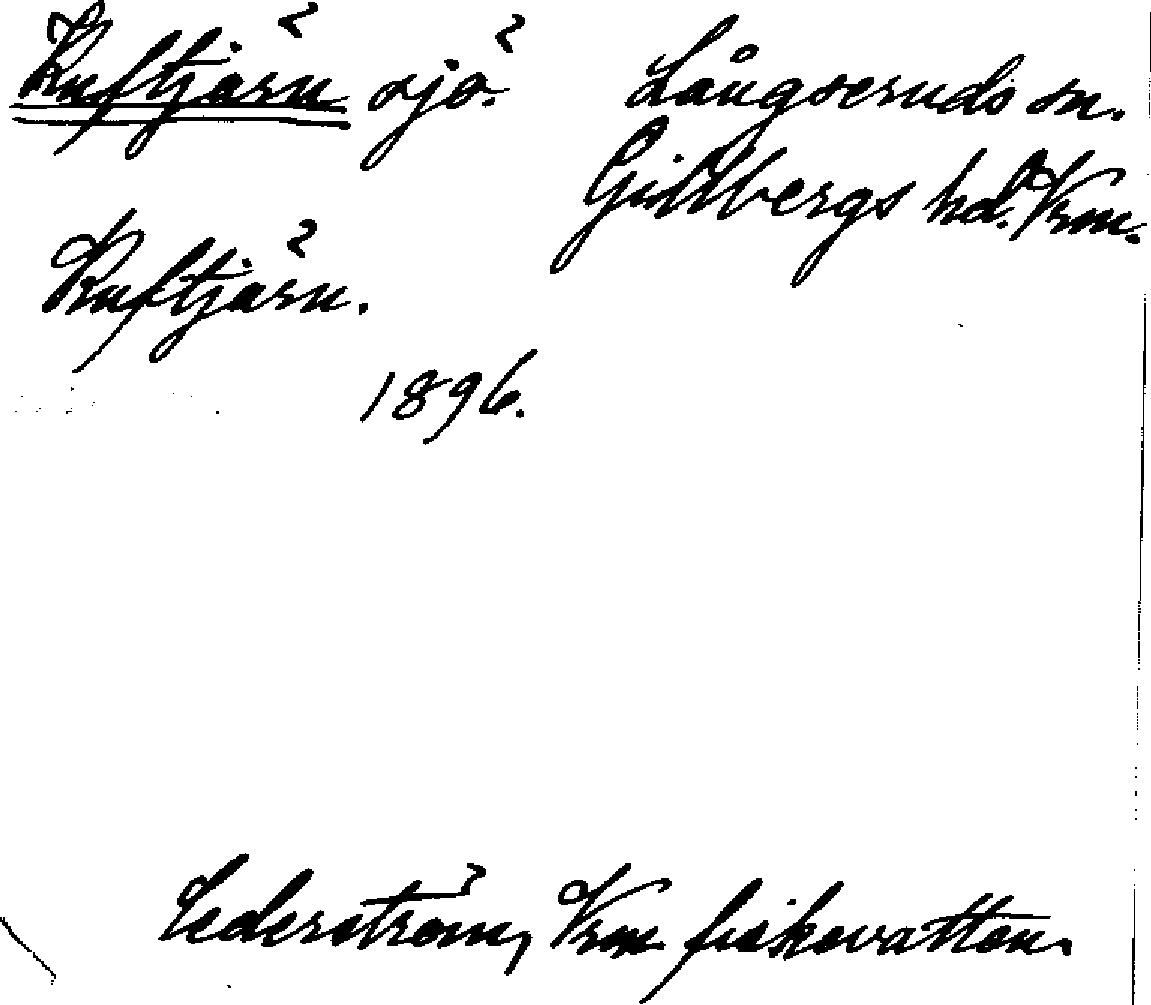 Kuftjärn sjö. Långseruds sn.
Gillbergs hd. Vrm.
Kuftjärn.
1896.
Cederström, Vrm fiskevatten.